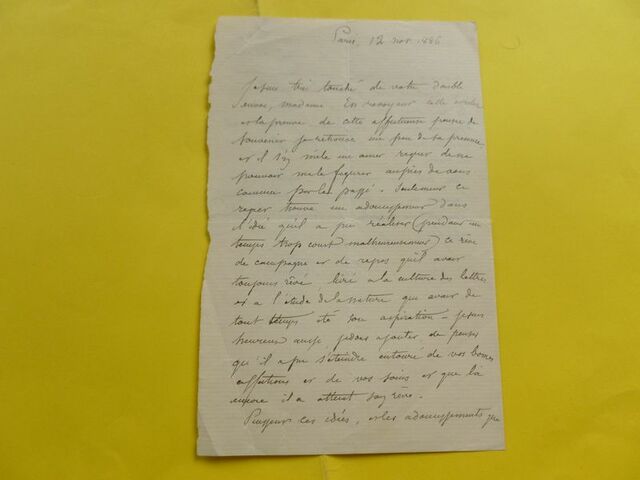 Paris, 12 nov. 1886
Je suis très touché de votre double
envoi, madame. En recevant cette
et la preuve de cette affectueuse pensée de
souvenir je retrouve un peu de sa présence
et il s'y mêle un amer regret de ne
pouvoir me le figurer auprès de vous
comme par le passé. Seulement ce
regret trouve un adoucissement dans
l'idée qu'il a pu réaliser (pendant un
temps trop court malheureusement) ce rêve
de campagne et de repos qu'il avait
toujours rêvé livré à la culture des lettres
et à l'étude de la nature qui avait de
tout temps été son aspiration – je suis
heureux aussi, je dois ajouter, de penser
qu'il a pu s'éteindre entouré de vos bonnes
affections et de vos soins et que là
encore il a atteint son rêve.
Puissent ces idées, et les adoucissements que